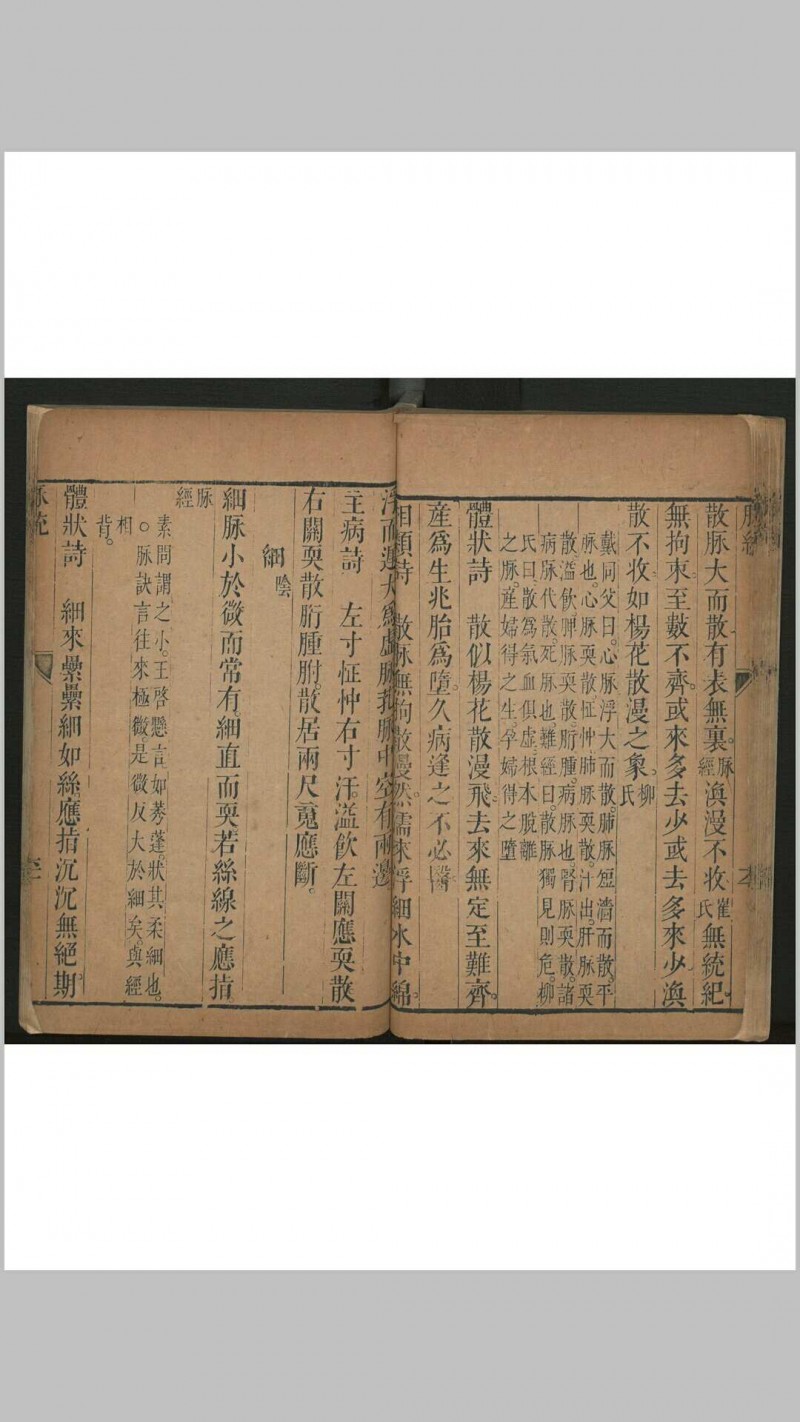 散脉大而散有表無裏。脉經渙漫不收崔氏無統紀。
無拘束至數不齊或來多去少或去多來少渙
散不收如楊花散漫之象。柳氏
戴同父曰。心脉浮大而散。肺脉短濇而散。平
脉也。心脉耎散怔忡肺脉耎散。汗出肝脉耎
散溢飲脾脉耎散胻腫病脉也腎脉耎散。諸
病脉代散。死脉也難經曰。散脉獨見則危。柳
氏曰散爲氣血俱虛。根本脫離
之脉。産婦得之生。孕婦得之墮
體狀詩 散似楊花散漫飛去來無定至難齊。
産爲生兆胎爲墮。久病逢之不必醫
相類詩 散脉無拘散漫然濡來浮細水中綿。
浮而遲大爲虛脉芤脉中空有兩邊
主病詩 左寸怔忡右寸汗。溢飮左關應耎散
右關耎散胻腫胕。散居兩尺䰟應斷。
細 陰
細脉小於微而常有細直而耎若絲線之應指
脉經
素問謂之小。王啓𤣥言如莠蓬。狀其柔細也。
○脉訣言往來極微。是微反大於細矣。與經
相背。
體狀詩 細來纍纍細如絲應指沉沉無絕期。